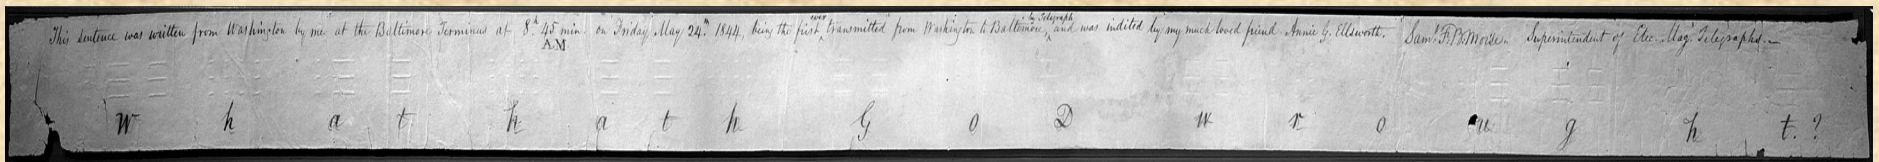 This sentence was written from Washington by me at the Baltimore Terminus at 8h 45 min. A.M. on Friday May 24th 1844, being the first ever transmitted from Washington to Baltimore, by Telegraph, and was indited by my much loved friend Annie G. Ellsworth. Saml. F. B. Morse. Superintendent of Elec. Mag. Telegraphs.
W h a t h a t h G o D w r o u g h t. ?